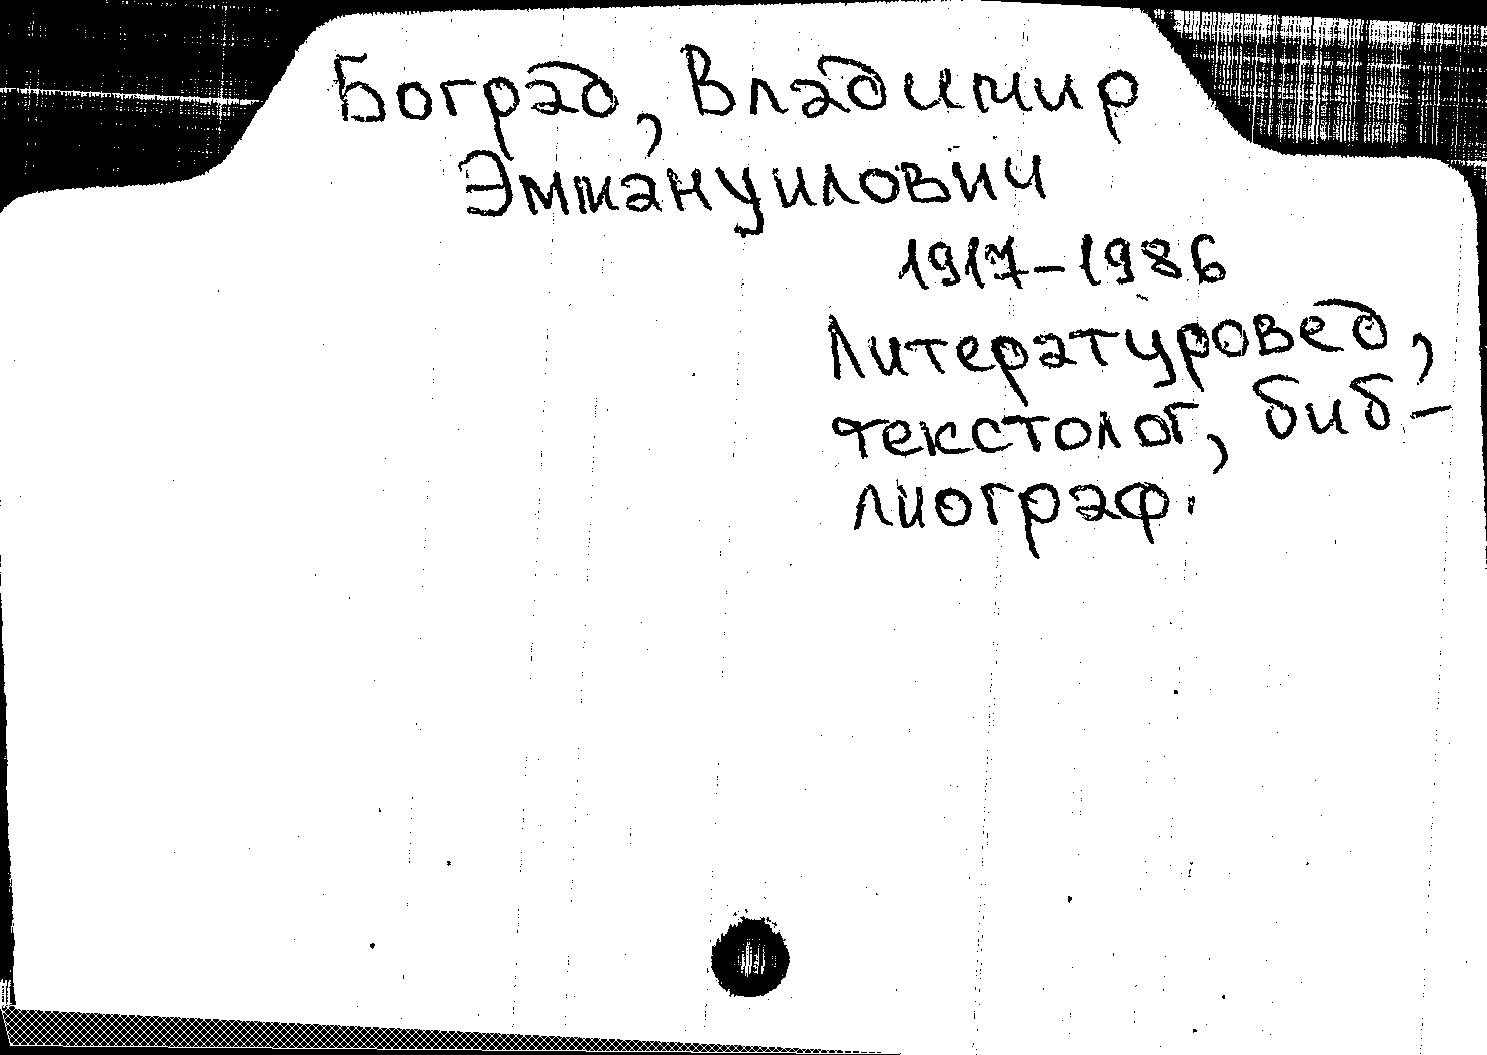 Боград, Владимир
Эммануилович
1917-1986
Литературовед,
текстолог, биб-
лиограф.